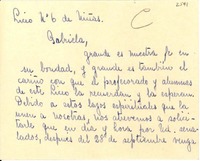 C
2141
Liceo Nº 6 de Niñas.
Gabriela,
grande es nuestra fe en
su bondad, y grande es también el
cariño con que el profesorado y alumnas
de este Liceo la recuerdan y la esperan.
Debido a estos lazos espirituales que la
unen a nosotras, nos atrevemos a solici-
tarle que en día y hora por Ud. seña-
lados, después del 28 de septiembre venga